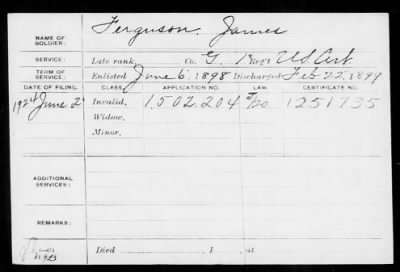 NAME OF SOLDIER: Ferguson, James
SERVICE: Late rank, Co. G, 1 Reg't U S Art.
TERM OF SERVICE: Enlisted June 6, 1898 Discharged Feb 22, 1899
DATE OF FILING. CLASS. APPLICATION NO. LAW. CERTIFICATE NO.
1924 June 2 Invalid, 1,502,204 1251735
Widow,
Minor,
ADDITIONAL SERVICES:
REMARKS:
Died , 1 , at